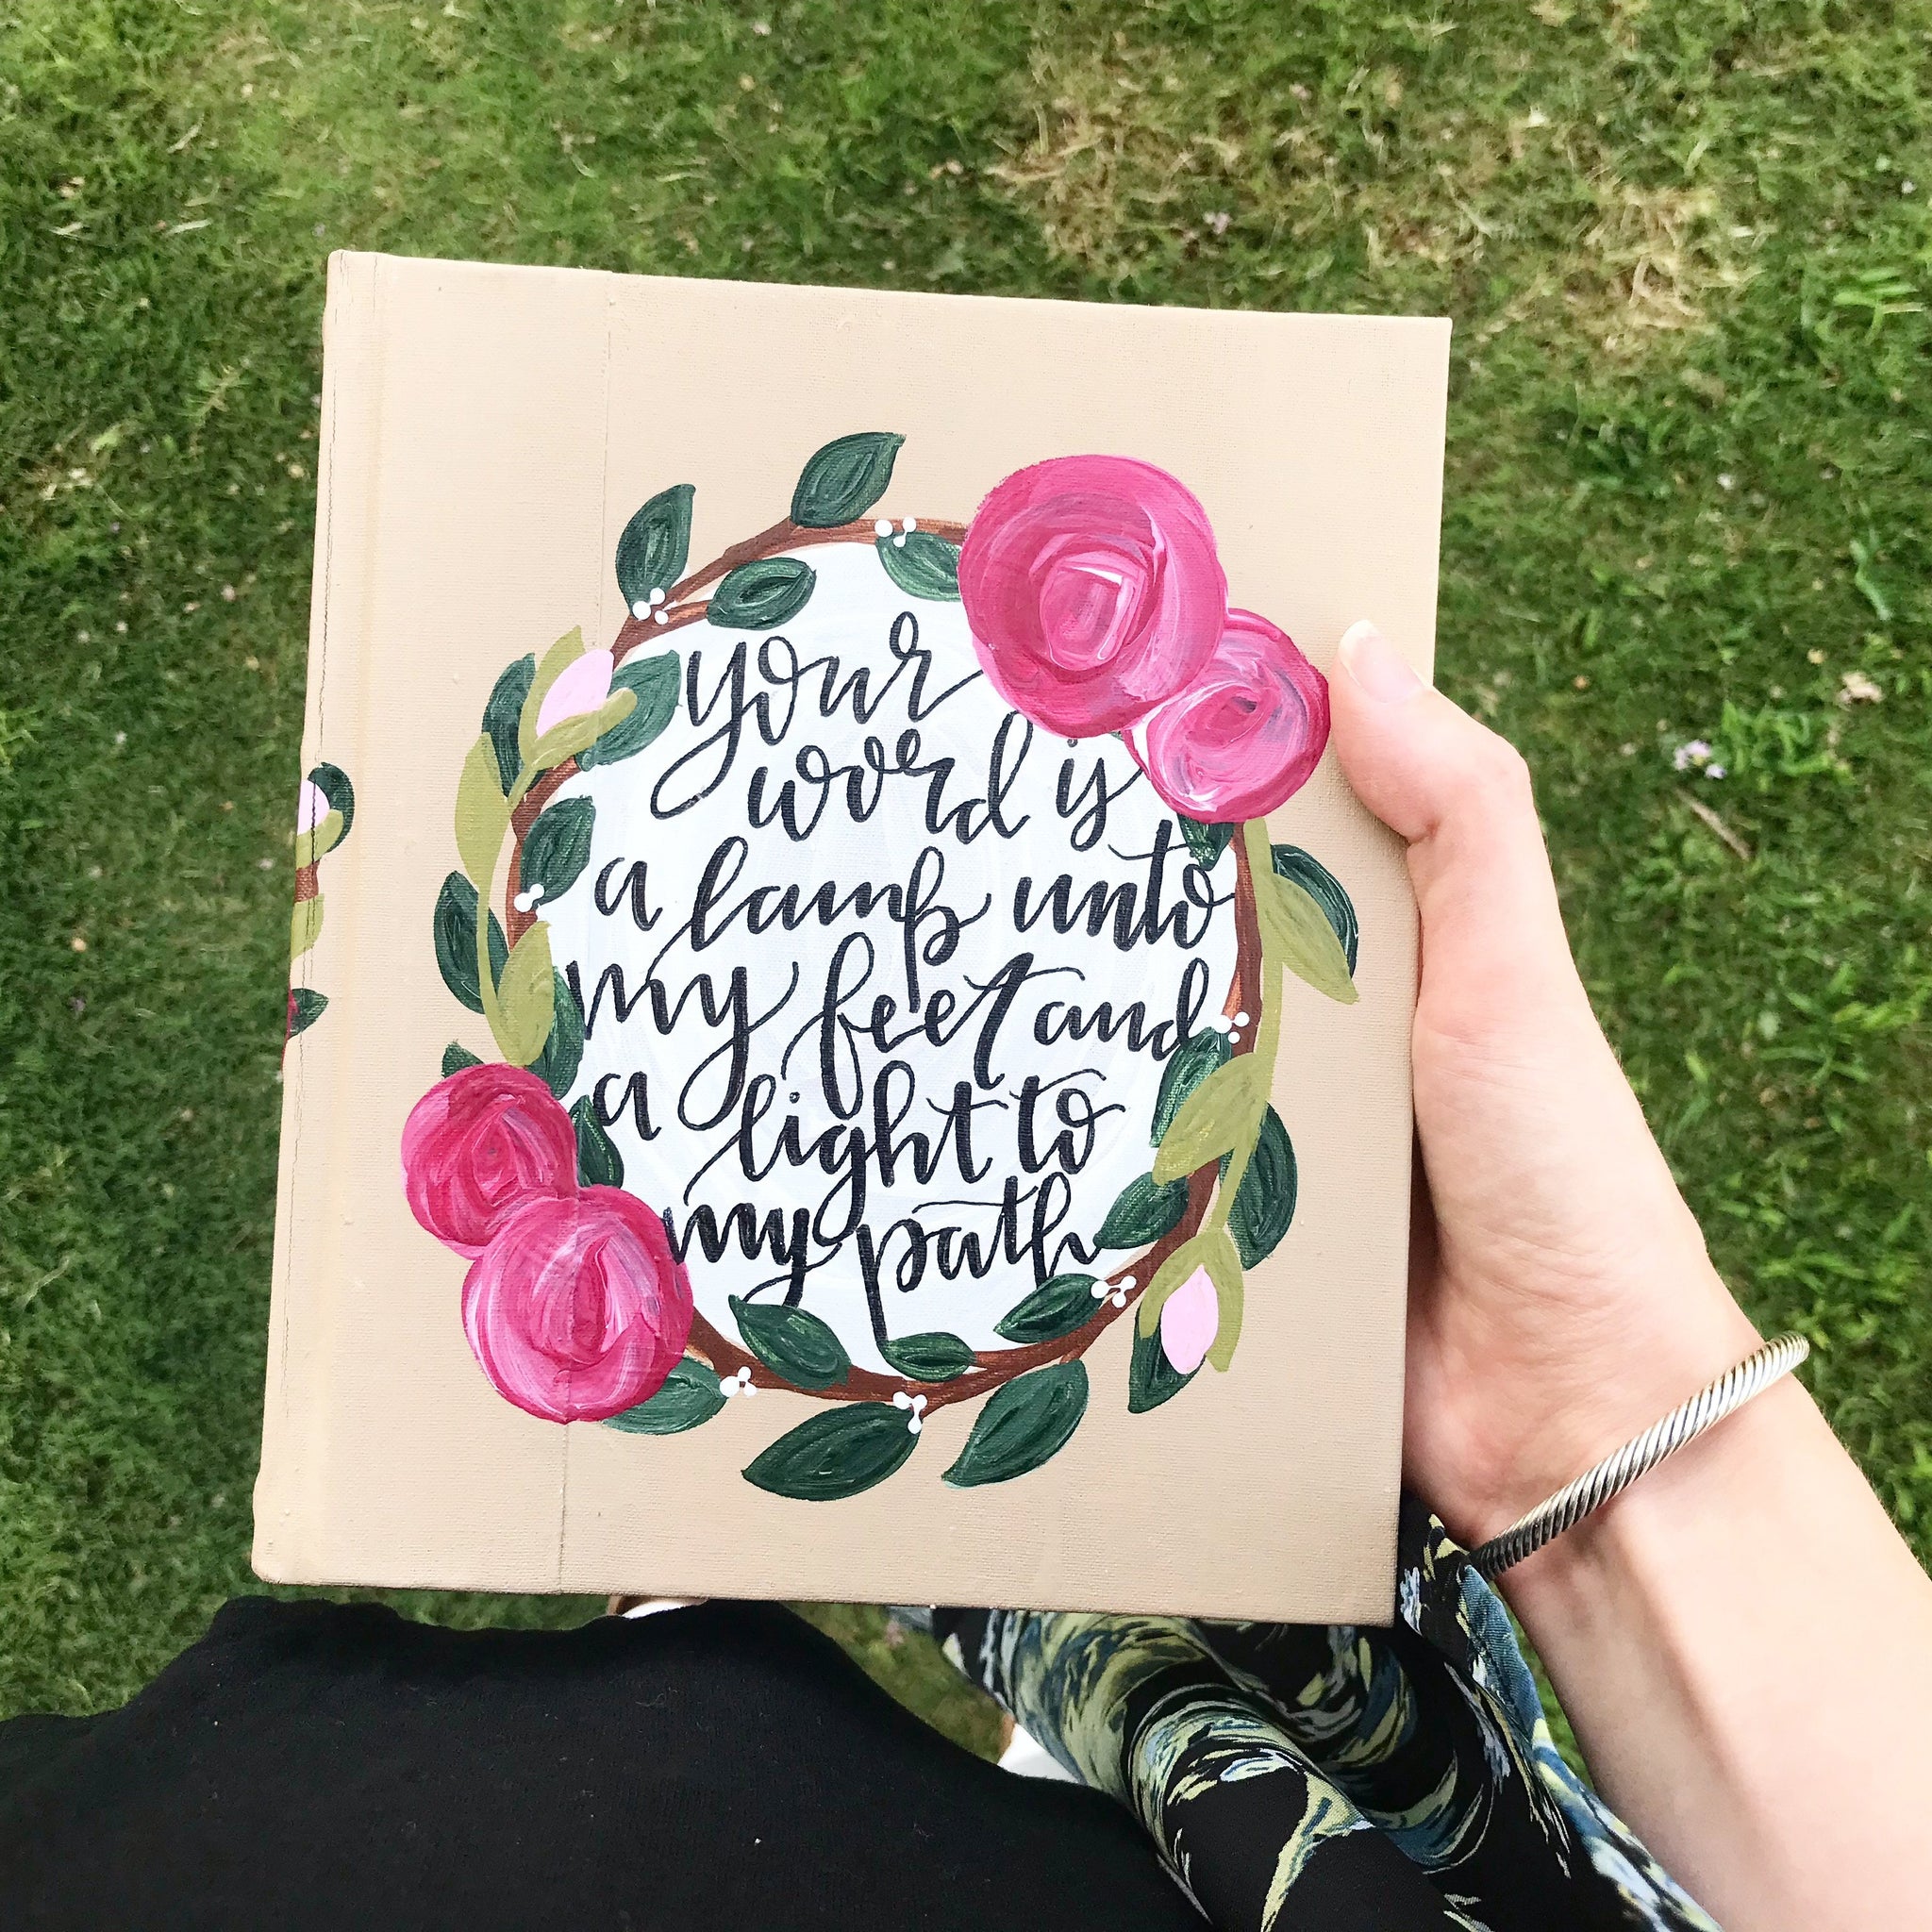 your
word is
a lamp unto
my feet and
a light to
my path